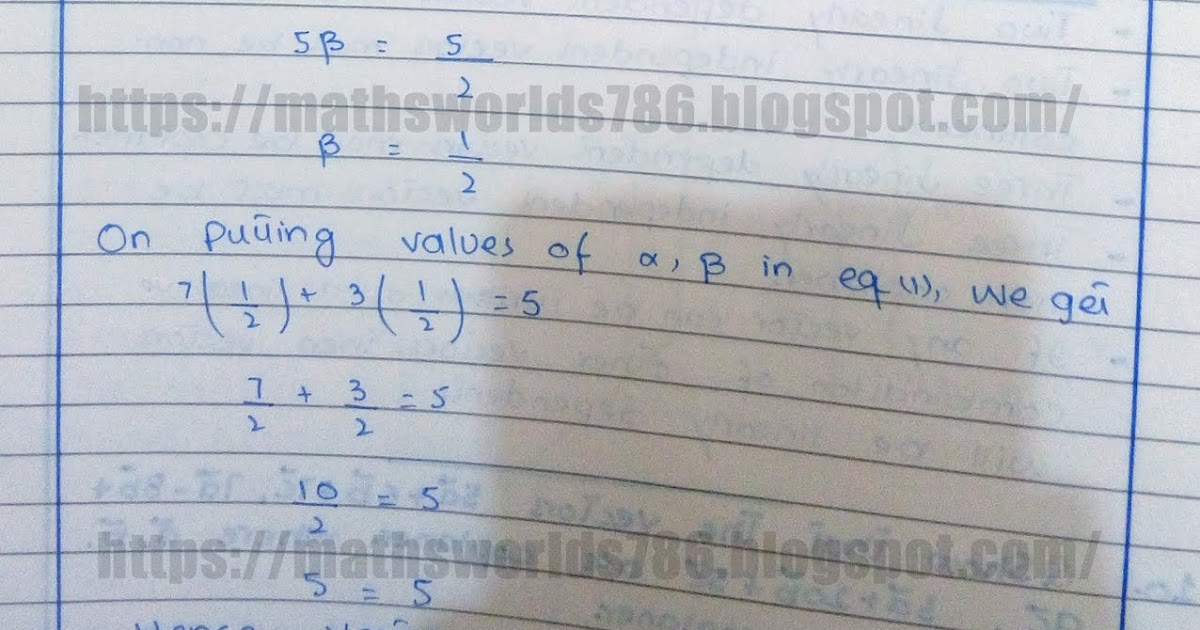 5β = 5/2
https://mathsworlds786.blogspot.com/
β = 1/2
On putting values of α, β in eq (1), we get
7(1/2) + 3(1/2) = 5
7/2 + 3/2 = 5
10/2 = 5
https://mathsworlds786.blogspot.com/
5 = 5